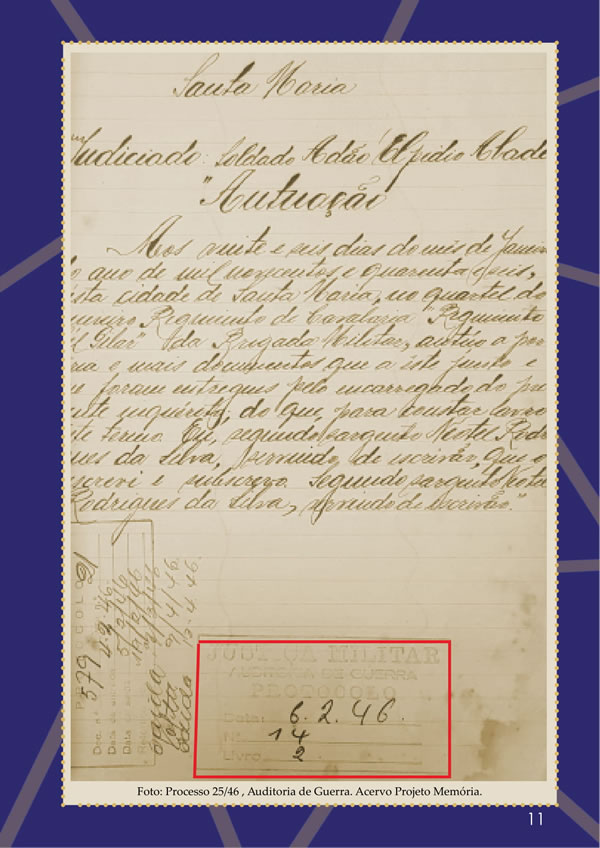 Santa Maria
Judiciado: Soldado Adão Elpidio Abade
"Autuação
Aos vinte e seis dias do mês de Janeiro
o ano de mil novecentos e quarenta e seis,
sta cidade de Santa Maria, no quartel do
meiro Regimento de Cavalaria "Regimento
el Pilar" da Brigada Militar, autúo a por
ria e mais documentos que a êste junto e
e foram entregues pelo encarregado do pre
nte inquerito, do que, para constar lavro
ste termo. Eu, segundo sargento Nestel Rodr
ues da Silva, servindo de escrivão, que o
screvi e subscrevo. Segundo sargento
Rodrigues da Silva, servindo de escrivão."
PROTOCOLO 21
Doc. n.º 579
JUSTIÇA MILITAR
AUDITORIA DE GUERRA
PROTOCOLO
Data: 6.2.46.
N.º 14
Livro 2
Foto: Processo 25/46 , Auditoria de Guerra. Acervo Projeto Memória.
11